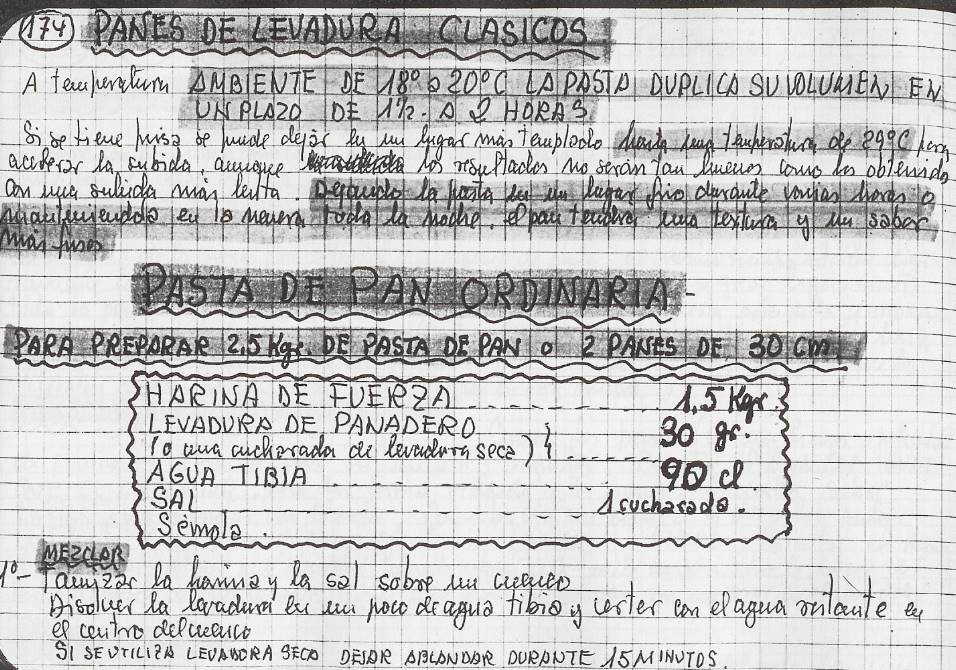 174 PANES DE LEVADURA CLASICOS
A temperatura AMBIENTE DE 18º o 20ºC LA PASTA DUPLICA SU VOLUMEN EN
UN PLAZO DE 1½. A 2 HORAS
Si se tiene prisa se puede dejar en un lugar más templado hasta una temperatura de 29ºC para
acelerar la subida, aunque los resultados no serán tan buenos como los obtenidos
con una subida más lenta. Dejando la pasta en un lugar frio durante varias horas o
manteniendola en la nevera toda la noche. el pan tendrá una textura y un sabor
más finos
PASTA DE PAN ORDINARIA -
PARA PREPARAR 2,5 Kgr. DE PASTA DE PAN o 2 PANES DE 30 cm
HARINA DE FUERZA 1.5 Kgr.
LEVADURA DE PANADERO 30 gr.
(o una cucharada de levadura seca)
AGUA TIBIA 90 cl
SAL 1 cucharada.
Sémola.
MEZCLAR
1º- Tamizar la harina y la sal sobre un cuenco
Disolver la levadura en un poco de agua tibia y verter con el agua restante en
el centro del cuenco
SI SE UTILIZA LEVADURA SECA DEJAR ABLANDAR DURANTE 15 MINUTOS.